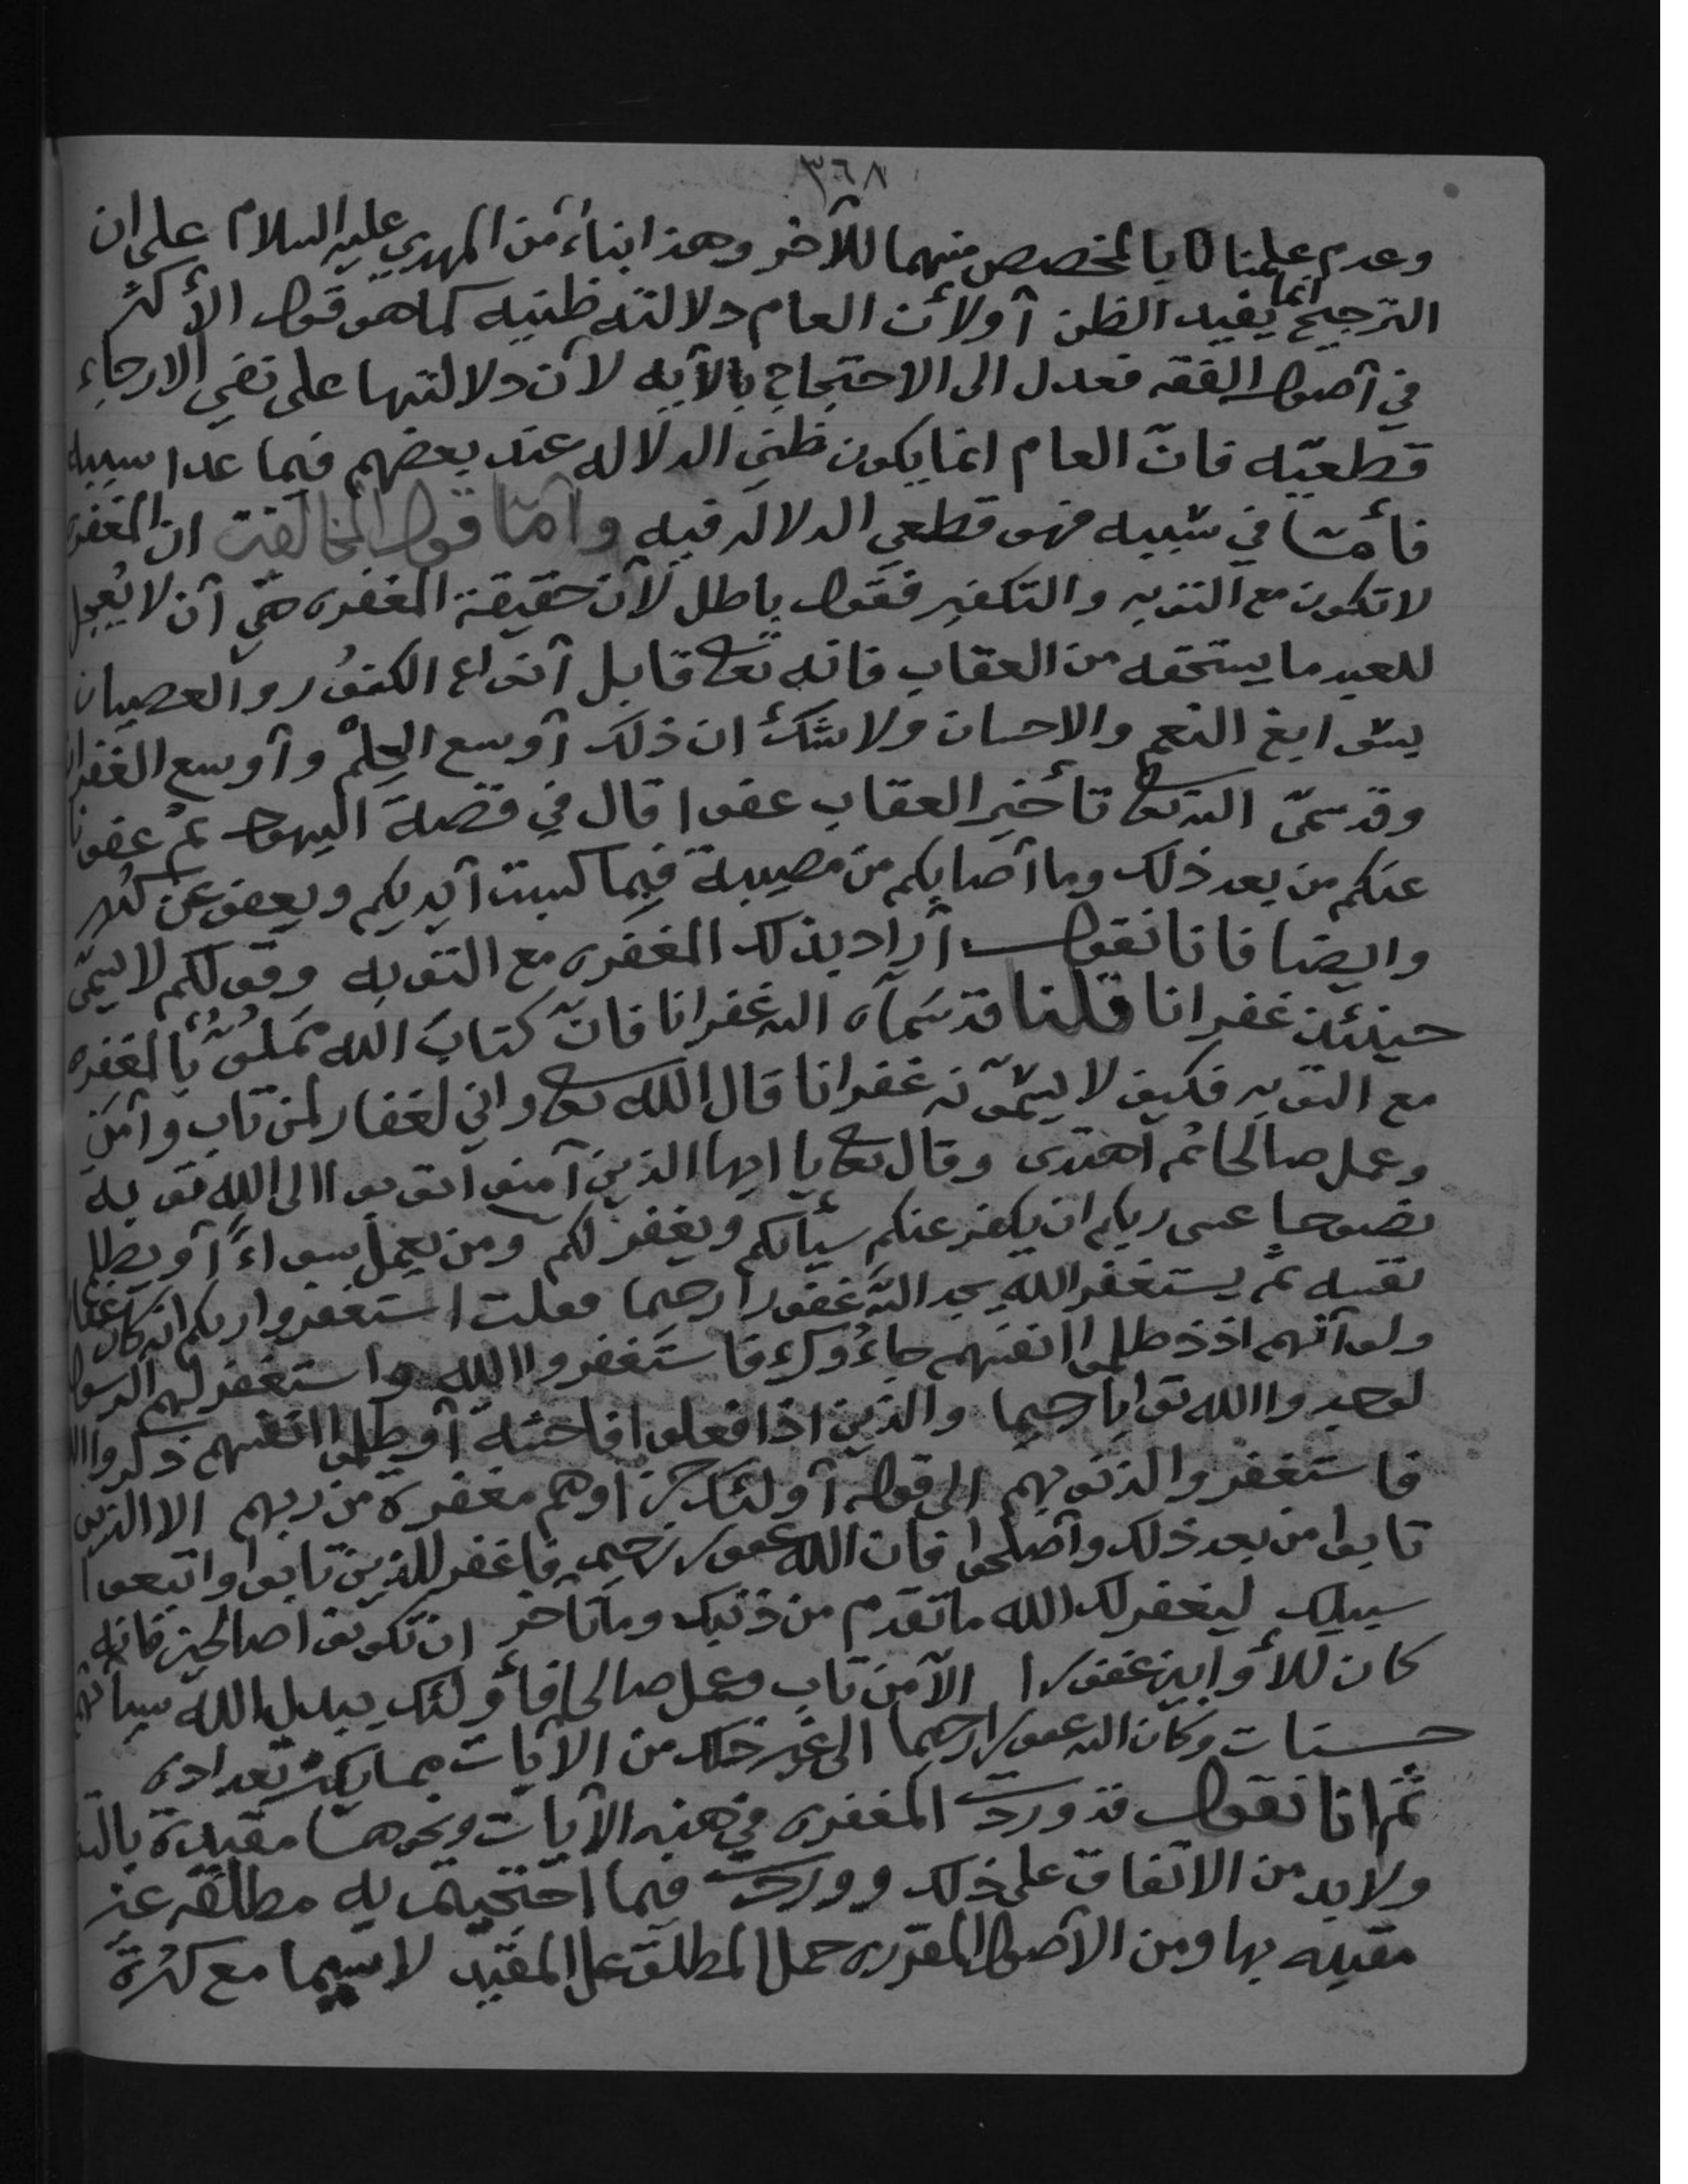 ٣٦٨
وعدم علمنا بالمخصص منهما للآخر وهذا بناء من المهدي عليه السلام على ان
الترجيح انما يفيد الظن أو لأن العام دلالته ظنيه كما هو قول الأكثر
في أصول الفقه فعدل الى الاحتجاج بالآيه لأن دلالتها على نفي الارجاء
قطعيّه فانّ العام انما يكون ظني الدلاله عند بعضهم فيما عدا سببه
فأمّا في سببه فهو قطعي الدلاله فيه وأمّا قول المخالفين ان المغفره
لا تكون مع التوبه والتكفير فقول باطل لأن حقيقة المغفره هي أن لا يُعجل
للعبد ما يستحقه من العقاب فانه تعالى قابل أنواع الكفُور والعصيان
بسوابغ النعم والاحسان ولا شك ان ذلك أوسع الحِلمْ وأوسع الغفران
وقد سمّى الله تعالى تأخير العقاب عفوا قال في قصة اليهود ثم عفونا
عنكم من بعد ذلك وما أصابكم من مصيبة فبما كسبت أيديكم ويعفو عن كثير
وايضا فانا نقول أراد بذلك المغفره مع التوبه وقولكم لا يسمّى
حينئذ غفرانا قلنا قد سمّاه الله غفرانا فانّ كتاب الله مملوٌ بالمغفره
مع التوبه فكيف لا يسمّونه غفرانا قال الله تعالى واني لغفار لمن تاب وآمن
وعمل صالحا ثم اهتدى وقال تعالى يا ايها الذين آمنوا توبوا الى الله توبه
نصوحا عسى ربكم ان يكفر عنكم سيأتكم ويغفر لكم ومن يعمل سواءً أو يظلم
نفسه ثم يستغفر الله يجد الله غفورا رحيما فقلت استغفروا ربكم انه كان غفارا
ولو أنهم اذ ظلموا انفسهم جاءُوك فاستغفروا الله واستغفر لهم الرسول
لوجدوا الله توابا رحيما والذين اذا فعلوا فاحشه أو ظلموا انفسهم ذكروا الله
فاستغفروا لذنوبهم الى قوله أولئك جزاوهم مغفرة من ربهم الا الذين
تابوا من بعد ذلك وأصلحوا فان الله غفور رحيم فاغفر للذين تابوا واتبعوا
سبيلك ليغفر لك الله ما تقدم من ذنبك وما تأخر ان تكونوا صالحين فانه
كان للأوابين غفورا الا من تاب وعمل صالحا فأولئك يبدل الله سيأتهم
حسنات وكان الله غفورا رحيما الى غير ذلك من الآيات مما يكثر تعداده
ثم انا نقول قد وردت المغفره في هذه الآيات ونحوها مقيدة
ولا بد من الاتفاق على ذلك ووردت فيما احتجيتم به مطلقه غير
مقيده بها ومن الأصول المقرره حمل المطلق على المقيد لا سيما مع كثرة